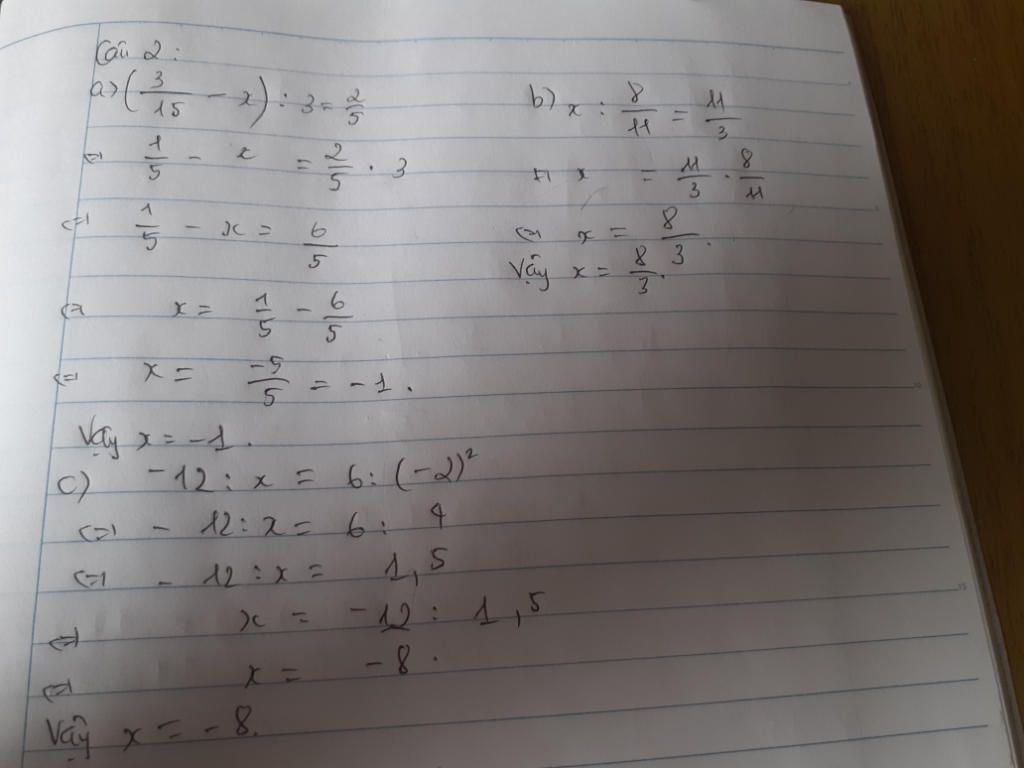 Câu 2:
a) (3/15 - x) : 3 = 2/5
⇔ 1/5 - x = 2/5 . 3
⇔ 1/5 - x = 6/5
⇔ x = 1/5 - 6/5
⇔ x = -5/5 = -1.
Vậy x = -1.
b) x : 8/11 = 11/3
⇔ x = 11/3 . 8/11
⇔ x = 8/3.
Vậy x = 8/3.
c) -12 : x = 6 : (-2)²
⇔ - 12 : x = 6 : 4
⇔ - 12 : x = 1,5
⇔ x = -12 : 1,5
⇔ x = -8.
Vậy x = -8.